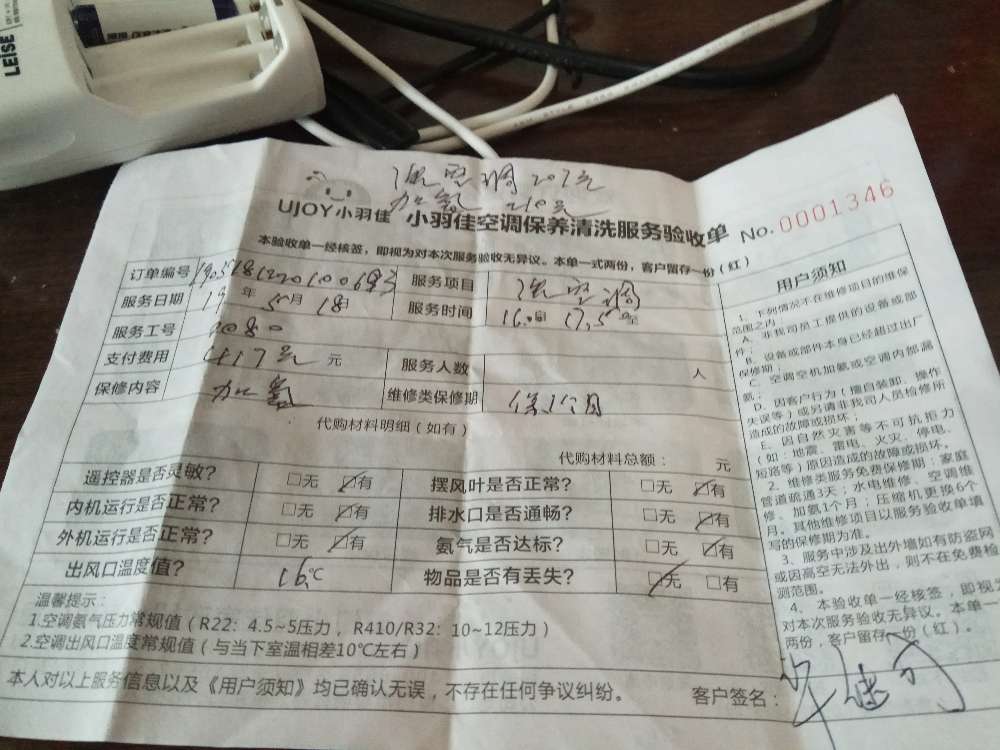 LEISE
洗空调207元
加氨 210元
UJOY小羽佳 小羽佳空调保养清洗服务验收单 No.0001346
本验收单一经核签，即视为对本次服务验收无异议。本单一式两份，客户留存一份（红）
订单编号 服务项目 洗空调
服务日期 19年5月18日 服务时间
服务工号 2080
支付费用 417元 元 服务人数 人
保修内容 加氨 维修类保修期 保1个月
代购材料明细（如有）
代购材料总额： 元
遥控器是否灵敏? □无 ☑有 摆风叶是否正常? □无 ☑有
内机运行是否正常? □无 ☑有 排水口是否通畅? □无 ☑有
外机运行是否正常? □无 ☑有 氨气是否达标? □无 ☑有
出风口温度值? 16℃ 物品是否有丢失? ☑无 □有
温馨提示：
1.空调氨气压力常规值（R22: 4.5~5压力，R410/R32: 10~12压力）
2.空调出风口温度常规值（与当下室温相差10℃左右）
本人对以上服务信息以及《用户须知》均已确认无误，不存在任何争议纠纷。 客户签名：
用户须知
1、下列情况不在维修项目的维保
范围之内：
A、非我司员工提供的设备或部
件；
B、设备或部件本身已经超过出厂
保修期；
C、空调空机加氨或空调内部漏
氨；
D、因客户行为（擅自装卸、操作
失误等）或另请非我司人员检修所
造成的故障或损坏；
E、因自然灾害等不可抗拒力
（如：地震、雷电、火灾、停电、
短路等）原因造成的故障或损坏。
2、维修类服务免费保修期：家庭
管道疏通3天；水电维修、空调维
修、加氨1个月；压缩机更换6个
月。其他维修项目以服务验收单填
写的保修期为准。
3、服务中涉及出外墙如有防盗网
或因高空无法外出，则不在免费检
测范围。
4、本验收单一经核签，即视为
对本次服务验收无异议。本单一
两份，客户留存一份（红）。